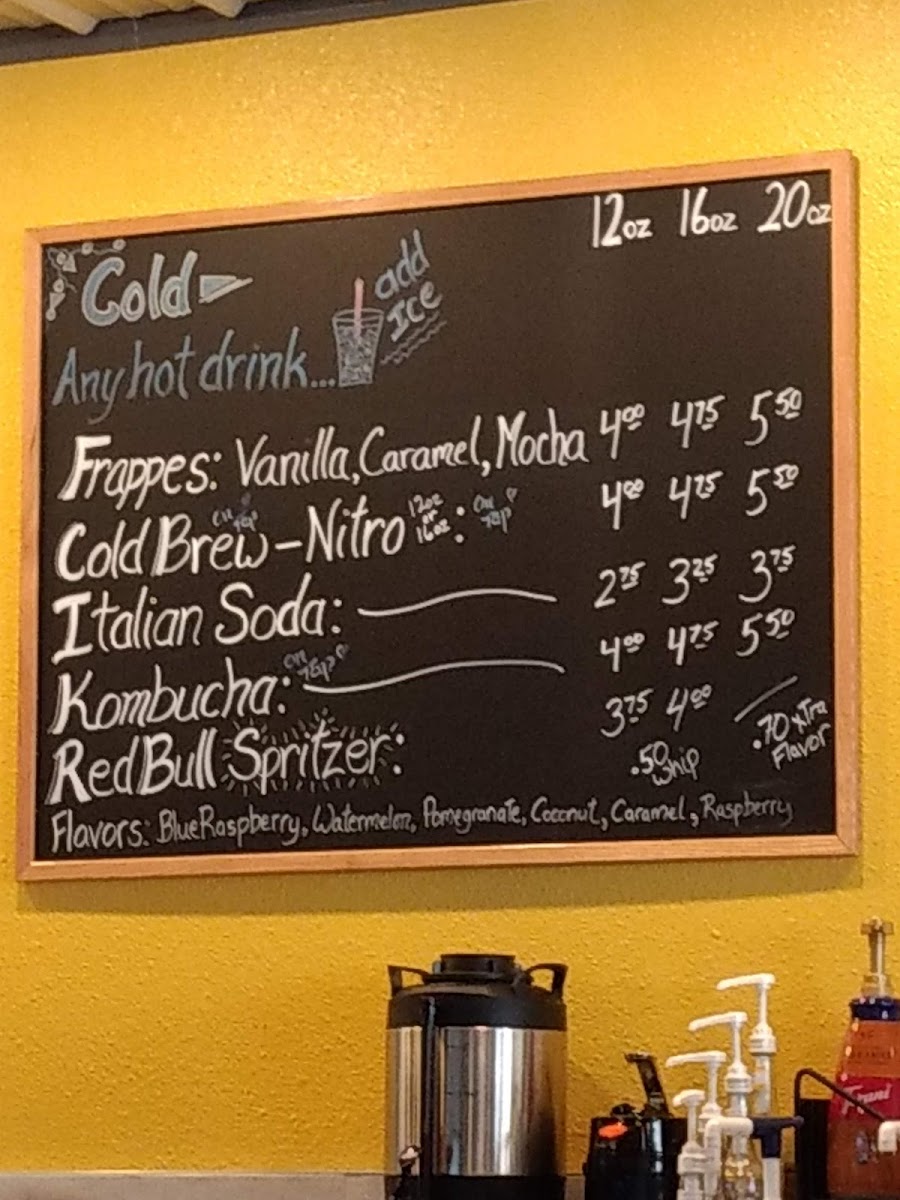 12oz 16oz 20oz
Cold
add
Ice
Any hot drink...
Frappes: Vanilla, Caramel, Mocha 4.00 4.75 5.50
on tap
12oz or 16oz
on tap
Cold Brew - Nitro: 4.00 4.75 5.50
Italian Soda: 2.75 3.25 3.75
on tap
Kombucha: 4.00 4.75 5.50
Red Bull Spritzer: 3.75 4.00
.50 whip
.70 xtra Flavor
Flavors: Blue Raspberry, Watermelon, Pomegranate, Coconut, Caramel, Raspberry